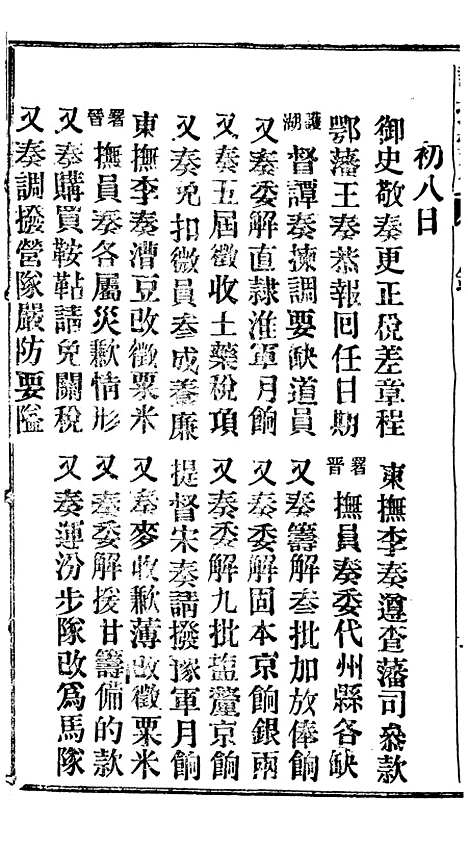 初八日
御史敬奏更正稅差章程
東撫李奏遵查藩司叅款
鄂藩王奏恭報回任日期
署晉撫員奏委代州縣各缺
護湖督譚奏揀調要缺道員
又奏籌解叁批加放俸餉
又奏委解直隸淮軍月餉
又奏委解固本京餉銀兩
又奏五屆徵收土藥稅項
又奏委解九批盐釐京餉
又奏免扣微員叁成養廉
提督宋奏請撥豫軍月餉
東撫李奏漕豆改徵粟米
又奏麥收歉薄改徵粟米
署晉撫員奏各屬災歉情形
又奏委解援甘籌備的款
又奏購買鞍鞊請免關稅
又奏運汾步隊改爲馬隊
又奏調撥營隊嚴防要隘